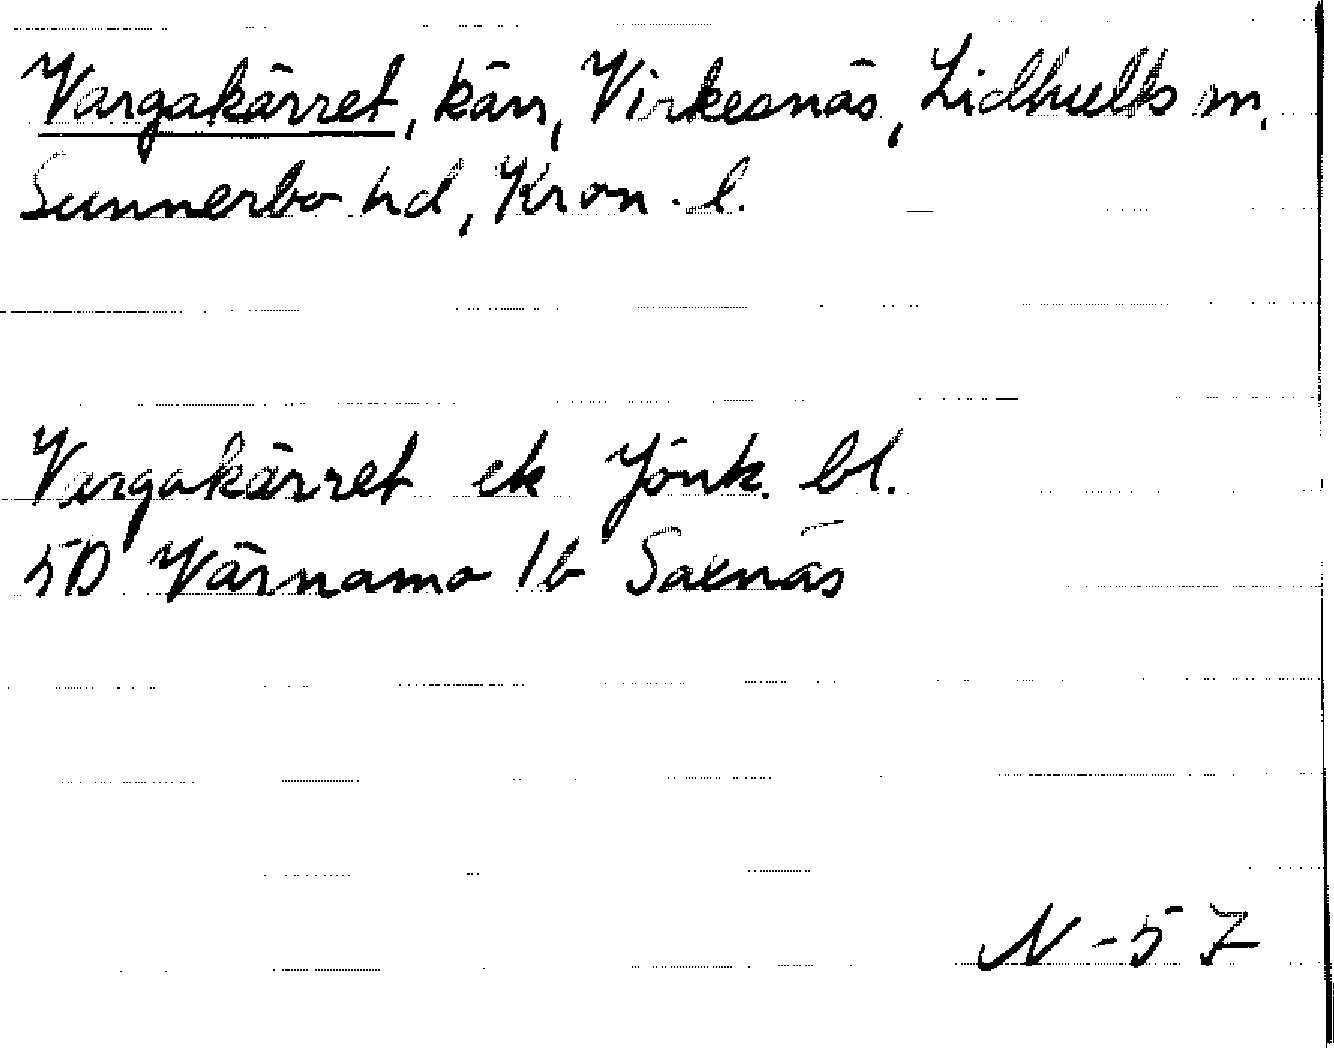 Vargakärret, kärr, Virkesnäs, Lidhults sn,
Sunnerbo hd, Kron. l.
Vargakärret ek Jönk. bl.
5D Värnamo 1b Saxnäs
N-57